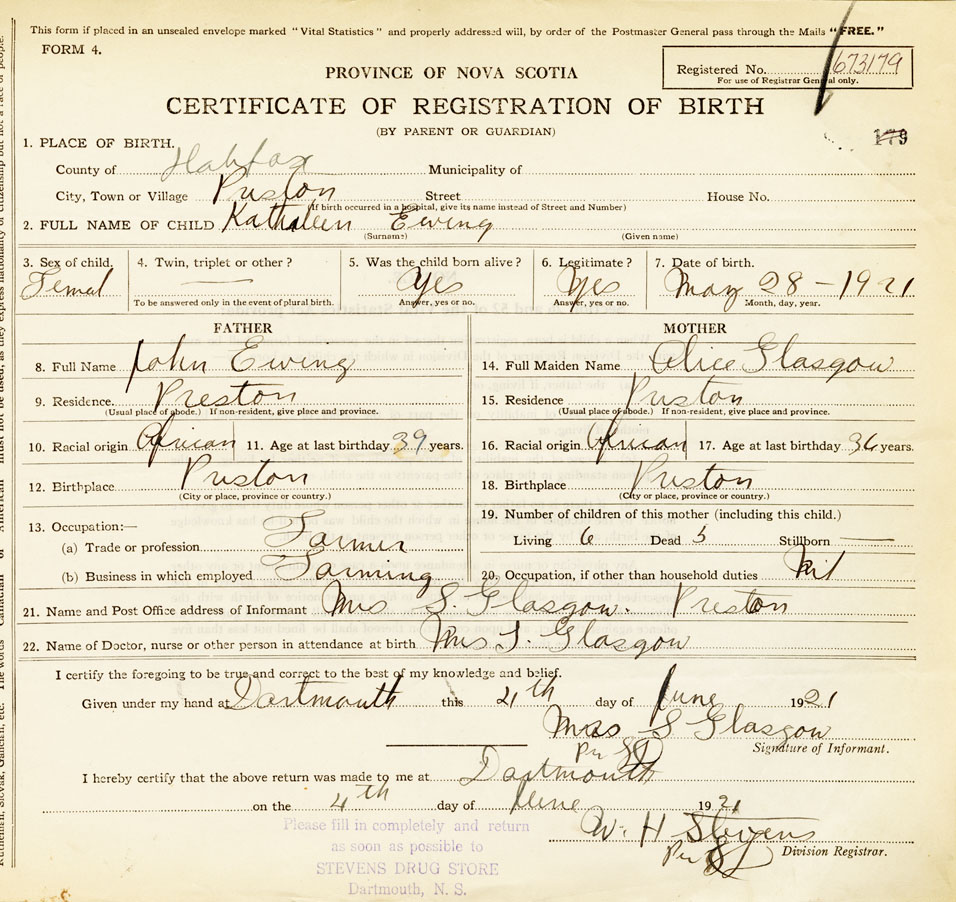 This form if placed in an unsealed envelope marked "Vital Statistics" and properly addressed will, by order of the Postmaster General pass through the Mails "FREE."
FORM 4.
Registered No. 673179
For use of Registrar General only.
PROVINCE OF NOVA SCOTIA
CERTIFICATE OF REGISTRATION OF BIRTH
(BY PARENT OR GUARDIAN)
179
1. PLACE OF BIRTH.
County of Halifax Municipality of
City, Town or Village Preston Street House No.
(If birth occurred in a hospital, give its name instead of Street and Number)
2. FULL NAME OF CHILD Kathaleen Ewing
(Surname) (Given name)
3. Sex of child. 4. Twin, triplet or other? 5. Was the child born alive? 6. Legitimate? 7. Date of birth.
Femal — Yes Yes May 28 - 1921
To be answered only in the event of plural birth. Answer, yes or no. Answer, yes or no. Month, day, year.
FATHER
8. Full Name John Ewing
9. Residence. Preston
(Usual place of abode.) If non-resident, give place and province.
10. Racial origin African 11. Age at last birthday 39 years.
12. Birthplace Preston
(City or place, province or country.)
13. Occupation:—
(a) Trade or profession Farmer
(b) Business in which employed Farming
MOTHER
14. Full Maiden Name Alice Glasgow
15. Residence Preston
(Usual place of abode.) If non-resident, give place and province.
16. Racial origin African 17. Age at last birthday 36 years.
18. Birthplace Preston
(City or place, province or country.)
19. Number of children of this mother (including this child.)
Living 6 Dead 5 Stillborn —
20. Occupation, if other than household duties Nil
21. Name and Post Office address of Informant Mrs S. Glasgow. Preston
22. Name of Doctor, nurse or other person in attendance at birth Mrs S. Glasgow
I certify the foregoing to be true and correct to the best of my knowledge and belief.
Given under my hand at Dartmouth this 4th day of June 1921
Mrs S Glasgow
Per
Signature of Informant.
I hereby certify that the above return was made to me at Dartmouth
on the 4th day of June 1921
W. H Stevens
Per
Division Registrar.
Please fill in completely and return
as soon as possible to
STEVENS DRUG STORE
Dartmouth, N. S.